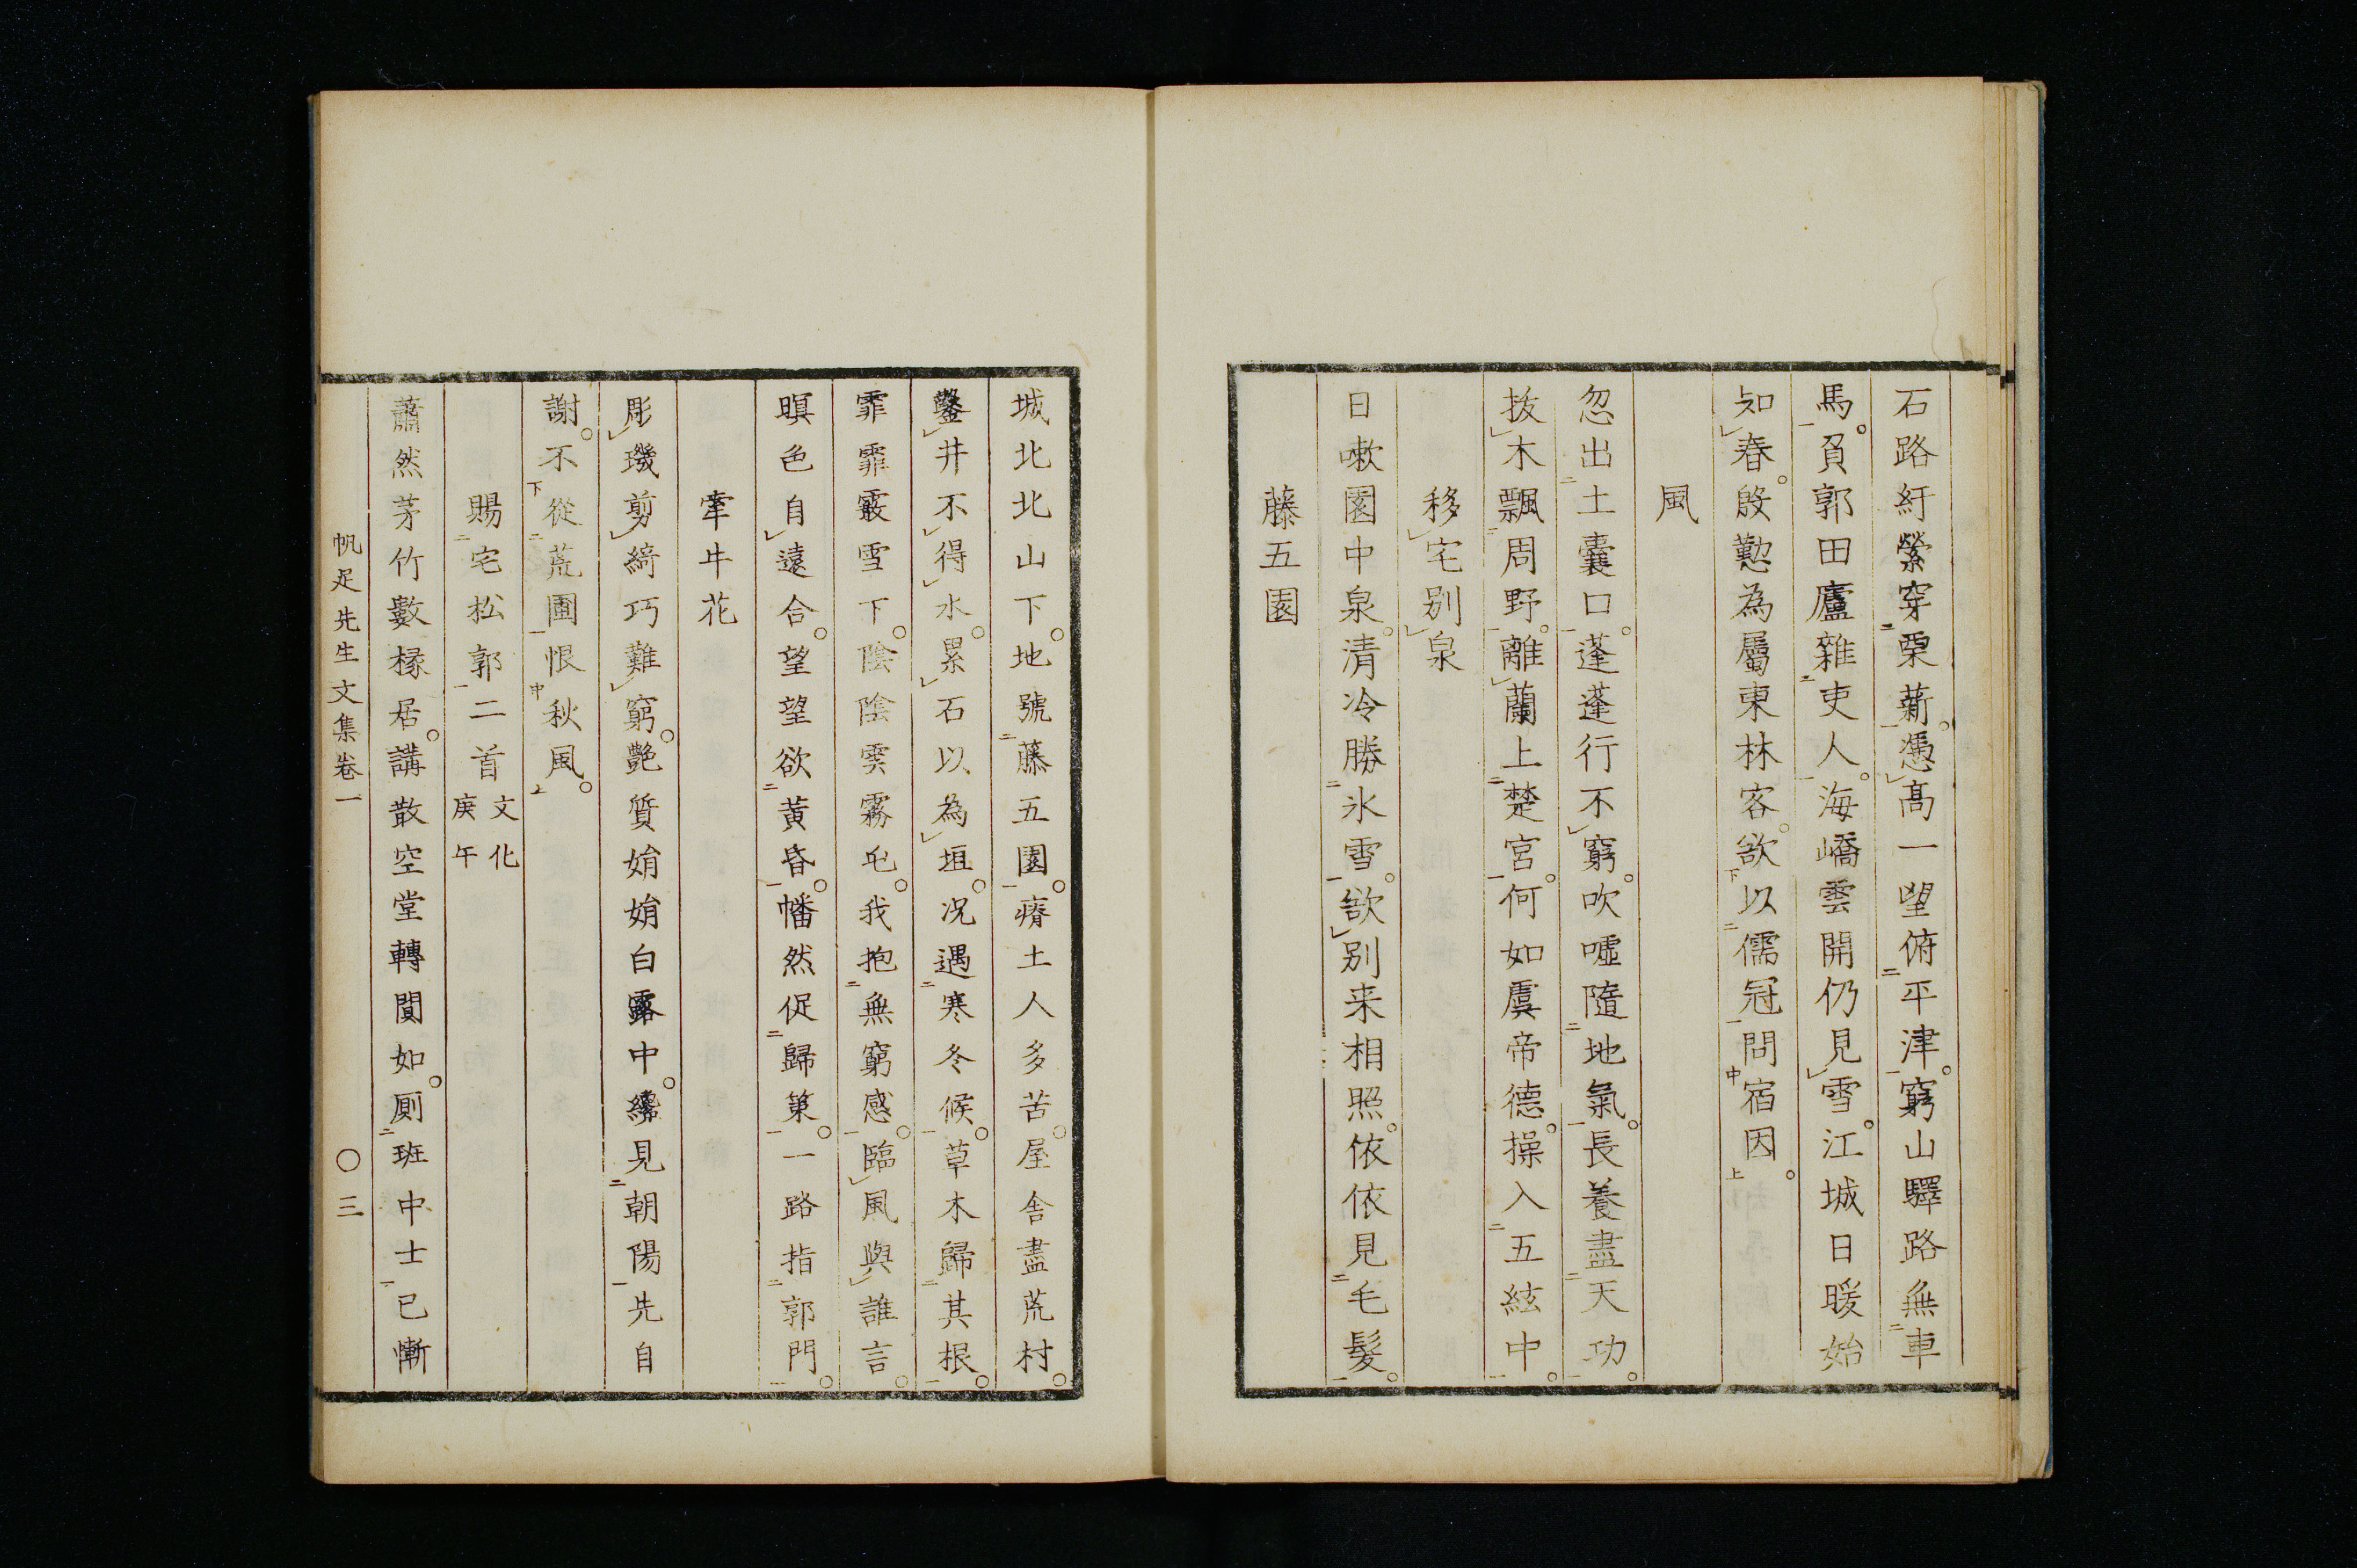 石路紆縈穿栗薪。憑高一望俯平津。窮山驛路無車
馬。負郭田廬雜吏人。海嶠雲開仍見雪。江城日暖始
知春。慇懃為屬東林客。欲以儒冠問宿因。
風
忽出土囊口。蓬蓬行不窮。吹噓隨地氣。長養盡天功。
拔木飄周野。離蘭上楚宮。何如虞帝德。操入五絃中。
移宅別泉
日嗽園中泉。清冷勝氷雪。欲別来相照。依依見毛髮。
藤五園
城北北山下。地號藤五園。瘠土人多苦。屋舍盡荒村。
鑿井不得水。累石以為垣。況遇寒冬候。草木歸其根。
霏霏霰雪下。陰陰雰霧屯。我抱無窮感。臨風與誰言。
暝色自遠合。望望欲黃昏。幡然促歸策。一路指郭門。
牽牛花
彫璣剪綺巧難窮。艷質娟娟白露中。纔見朝陽先自
謝。不從荒圃恨秋風。
賜宅松郭二首 文化庚午
蕭然茅竹數椽居。講散空堂轉闃如。厠班中士已慚
帆足先生文集卷一 〇三